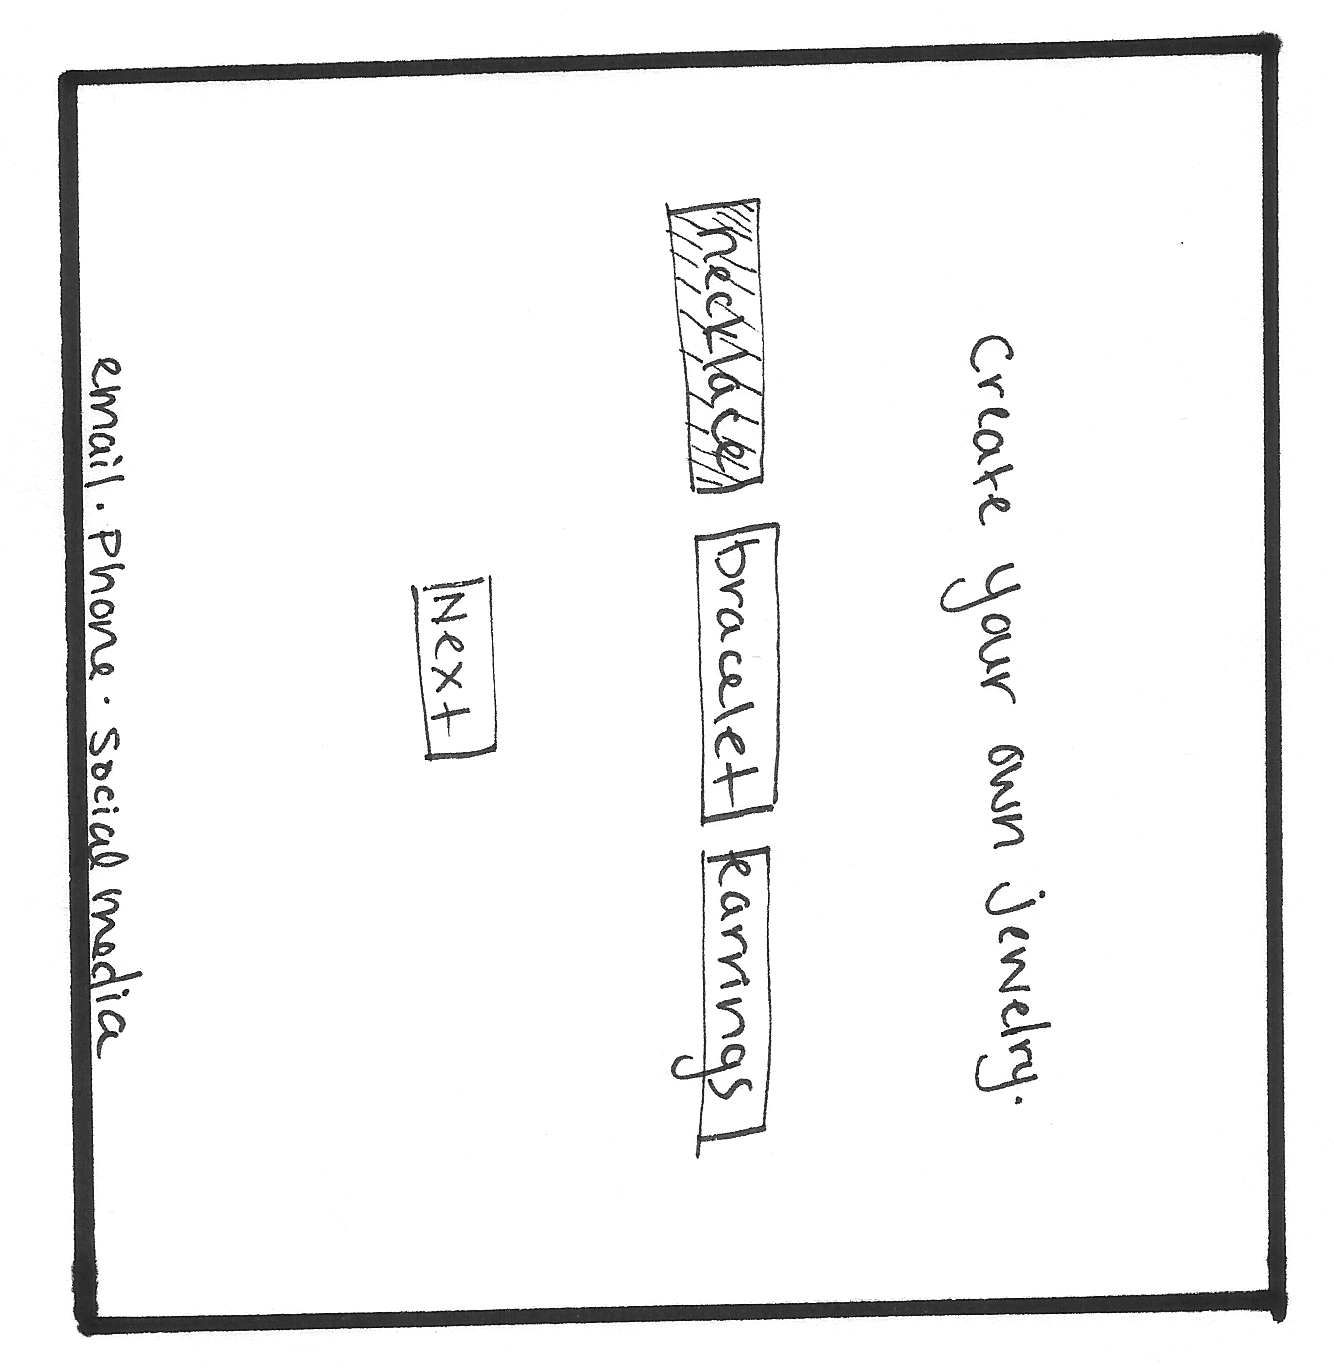 Create your own jewelry.
necklace bracelet earrings
Next
email · Phone · Social media